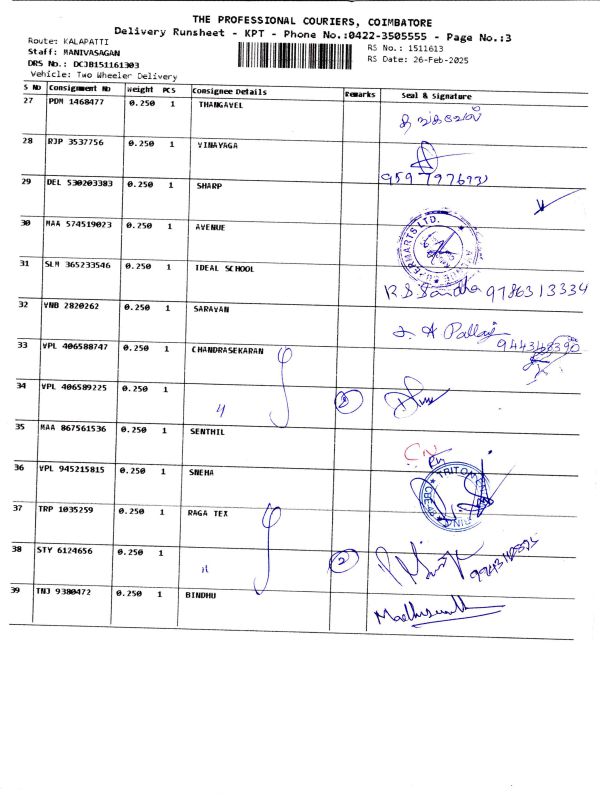 THE PROFESSIONAL COURIERS, COIMBATORE
Delivery Runsheet - KPT - Phone No.:0422-3505555 - Page No.:3
Route: KALAPATTI
RS No.: 1511613
Staff: MANIVASAGAN
RS Date: 26-Feb-2025
DRS No.: DCJB151161303
Vehicle: Two Wheeler Delivery
S No Consignment No Weight PCS Consignee Details Remarks Seal & Signature
27 PDM 1468477 0.250 1 THANGAVEL தங்கவேல்
28 RJP 3537756 0.250 1 VINAYAGA
29 DEL 530203383 0.250 1 SHARP
30 MAA 574519023 0.250 1 AVENUE
31 SLM 365233546 0.250 1 IDEAL SCHOOL 9786313334
32 VNB 2820262 0.250 1 SARAVAN
33 VPL 406588747 0.250 1 CHANDRASEKARAN
34 VPL 406589225 0.250 1 〃
35 MAA 867561536 0.250 1 SENTHIL
36 VPL 945215815 0.250 1 SNEHA
37 TRP 1035259 0.250 1 RAGA TEX
38 STY 6124656 0.250 1 〃 2
39 TNJ 9380472 0.250 1 BINDHU